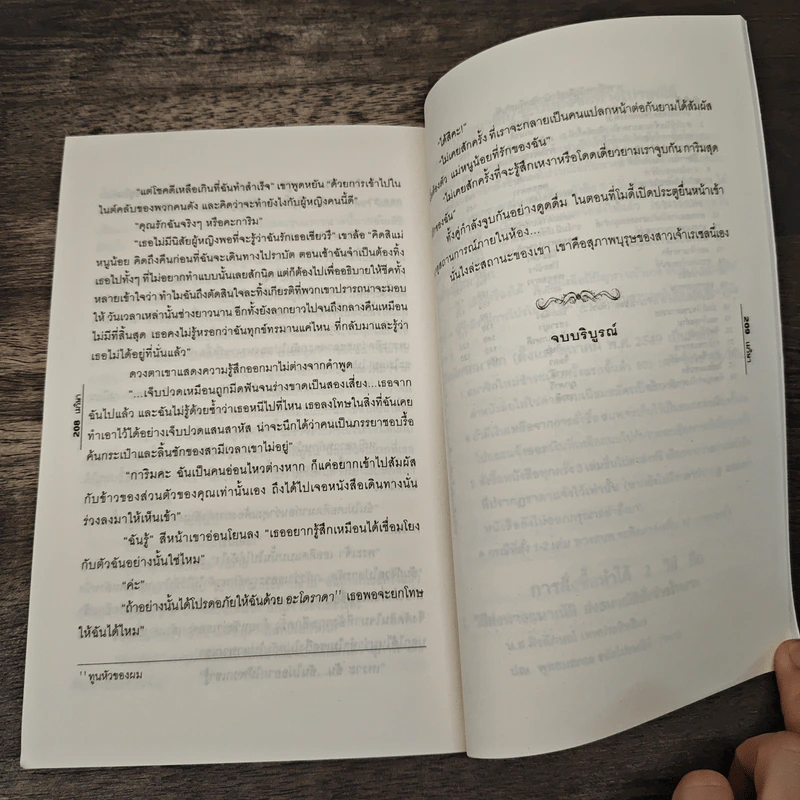 "แต่โชคดีเหลือเกินที่ฉันทำสำเร็จ" เขาพูดหยัน "ด้วยการเข้าไปใน
ไนต์คลับของพวกคนดัง และคิดว่าจะทำยังไงกับผู้หญิงคนนี้ดี"
"คุณรักฉันจริงๆ หรือคะการิม"
"เธอไม่มีนิสัยผู้หญิงพอที่จะรู้ว่าฉันรักเธอเชียวรึ" เขาล้อ "คิดสิแม่
หนูน้อย คิดถึงคืนก่อนที่ฉันจะเดินทางไปราบัต ตอนเช้าฉันจำเป็นต้องทิ้ง
เธอไปทั้งๆ ที่ไม่อยากทำแบบนั้นเลยสักนิด แต่ก็ต้องไปเพื่ออธิบายให้ชีคทั้ง
หลายเข้าใจว่า ทำไมฉันถึงตัดสินใจละทิ้งเกียรติที่พวกเขาปรารถนาจะมอบ
ให้ วันเวลาเหล่านั้นช่างยาวนาน อีกทั้งยังลากยาวไปจนถึงกลางคืนเหมือน
ไม่มีที่สิ้นสุด เธอคงไม่รู้หรอกว่าฉันทุกข์ทรมานแค่ไหน ที่กลับมาและรู้ว่า
เธอไม่ได้อยู่ที่นั่นแล้ว"
ดวงตาเขาแสดงความรู้สึกออกมาไม่ต่างจากคำพูด
"...เจ็บปวดเหมือนถูกมีดฟันจนร่างขาดเป็นสองเสี่ยง...เธอจาก
ฉันไปแล้ว และฉันไม่รู้ด้วยซ้ำว่าเธอหนีไปที่ไหน เธอลงโทษในสิ่งที่ฉันเคย
ทำเอาไว้ได้อย่างเจ็บปวดแสนสาหัส น่าจะนึกได้ว่าคนเป็นภรรยาชอบรื้อ
ค้นกระเป๋าและลิ้นชักของสามีเวลาเขาไม่อยู่"
"การิมคะ ฉันเป็นคนอ่อนไหวต่างหาก ก็แค่อยากเข้าไปสัมผัส
กับข้าวของส่วนตัวของคุณเท่านั้นเอง ถึงได้ไปเจอหนังสือเดินทางนั่น
ร่วงลงมาให้เห็นเข้า"
"ฉันรู้" สีหน้าเขาอ่อนโยนลง "เธออยากรู้สึกเหมือนได้เชื่อมโยง
กับตัวฉันอย่างนั้นใช่ไหม"
"ค่ะ"
"ถ้าอย่างนั้นได้โปรดอภัยให้ฉันด้วย อะโดราดา¹¹ เธอพอจะยกโทษ
ให้ฉันได้ไหม"
¹¹ ทูนหัวของผม
208 นภิษา
"ได้สิคะ!"
"ไม่เคยสักครั้ง ที่เราจะกลายเป็นคนแปลกหน้าต่อกันยามได้สัมผัส
แม่หนูน้อยที่รักของฉัน"
"ไม่เคยสักครั้งที่จะรู้สึกเหงาหรือโดดเดี่ยวยามเราจูบกัน การิมสุด
ของฉัน"
ทั้งคู่กำลังจูบกันอย่างดูดดื่ม ในตอนที่โมตี้เปิดประตูยื่นหน้าเข้า
สถานการณ์ภายในห้อง...
นั่นไงล่ะสถานะของเขา เขาคือสุภาพบุรุษของสาวเจ้าเรเซลนี่เอง
จบบริบูรณ์
209 นภิษา